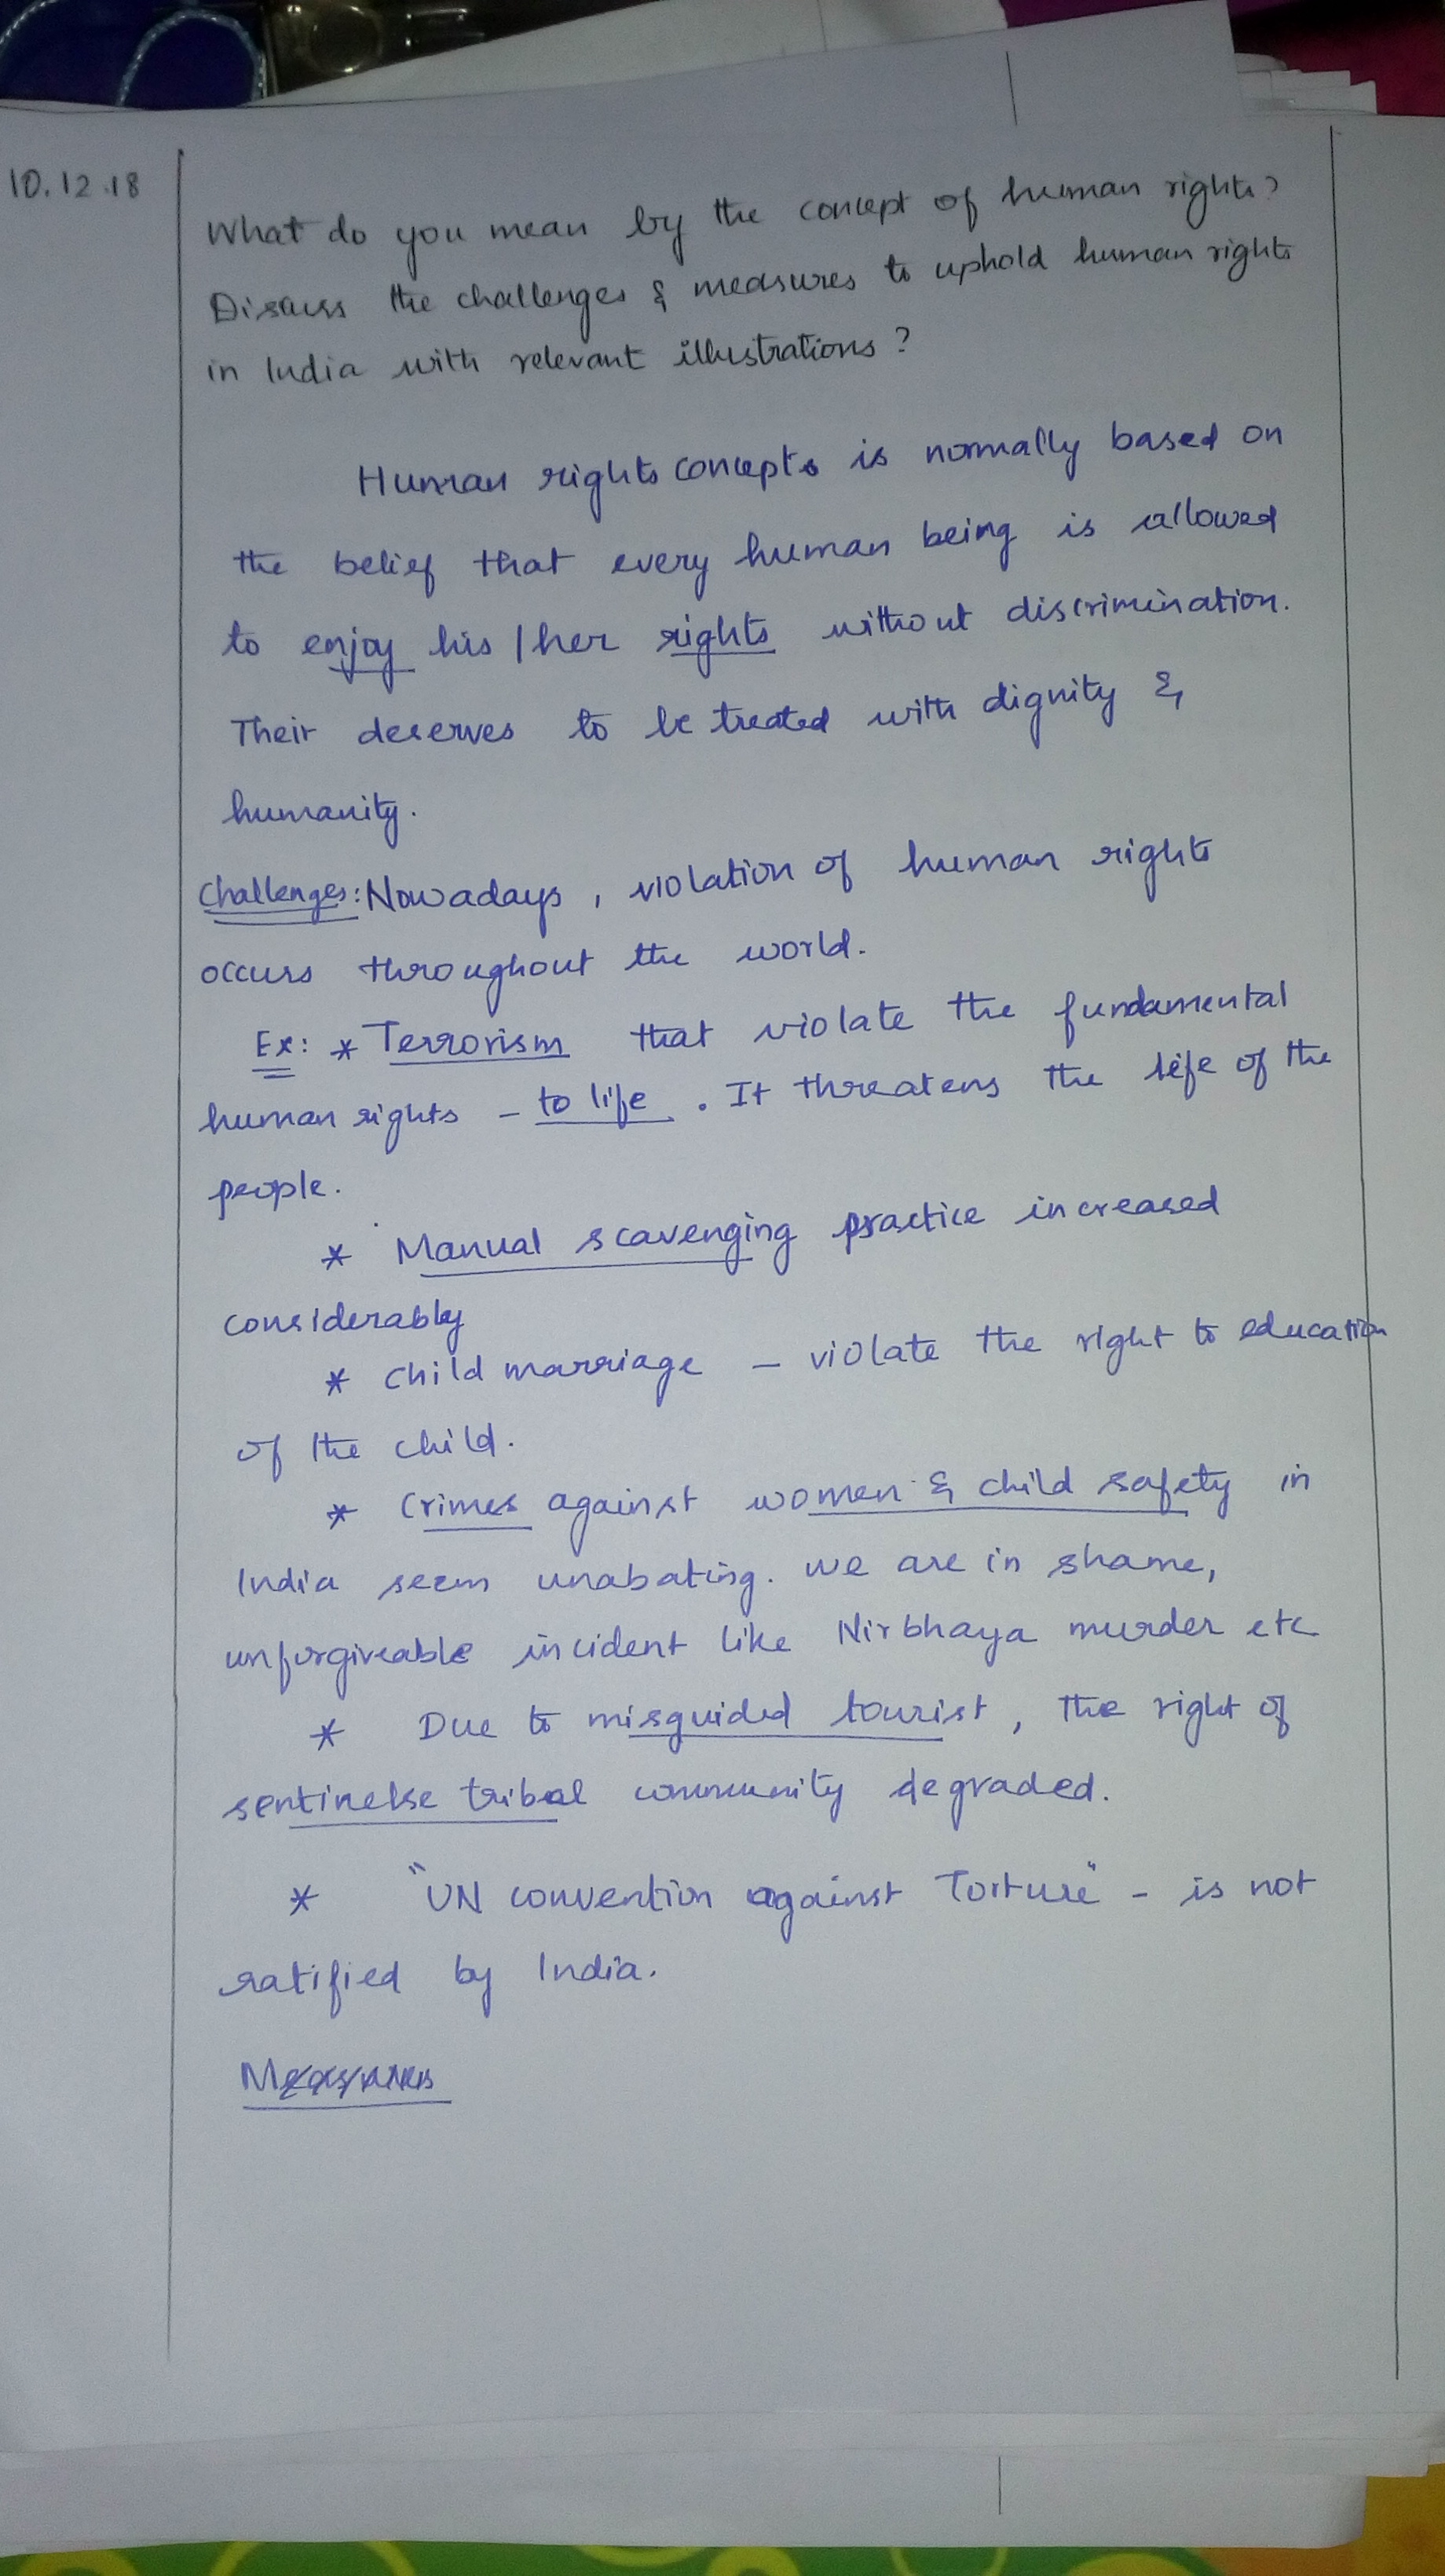 10.12.18
What do you mean by the concept of human rights?
Discuss the challenges & measures to uphold human rights
in India with relevant illustrations?
Human rights concepts is normally based on
the belief that every human being is allowed
to enjoy his / her rights without discrimination.
Their deserves to be treated with dignity &
humanity.
Challenges: Nowadays, violation of human rights
occurs throughout the world.
Ex: * Terrorism that violate the fundamental
human rights - to life. It threatens the life of the
people.
* Manual scavenging practice increased
considerably
* Child marriage - violate the right to education
of the child.
* Crimes against women & child safety in
India seem unabating. we are in shame,
unforgiveable incident like Nirbhaya murder etc
* Due to misguided tourist, the right of
sentinelse tribal community degraded.
* "UN convention against Torture" - is not
ratified by India.
Measures